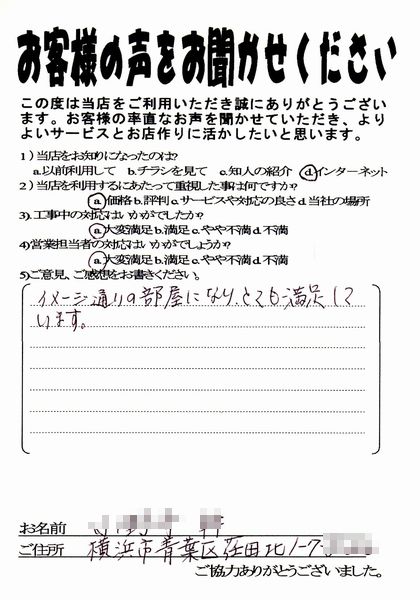 お客様の声をお聞かせください
この度は当店をご利用いただき誠にありがとうござい
ます。お客様の率直なお声を聞かせていただき、より
よいサービスとお店作りに活かしたいと思います。
1)当店をお知りになったのは?
a.以前利用して b.チラシを見て c.知人の紹介 dインターネット
2)当店を利用するにあたって重視した事は何ですか?
a.価格 b.評判 c.サービスや対応の良さ d.当社の場所
3).工事中の対応はいかがでしたか?
a.大変満足 b.満足 c.やや不満 d.不満
4)営業担当者の対応はいかがでしょうか?
a.大変満足 b.満足 c.やや不満 d.不満
5)ご意見、ご感想をお書きください。
イメージ通りの部屋になり、とても満足して
います。
お名前
ご住所 横浜市青葉区荏田北1-7-
ご協力ありがとうございました。